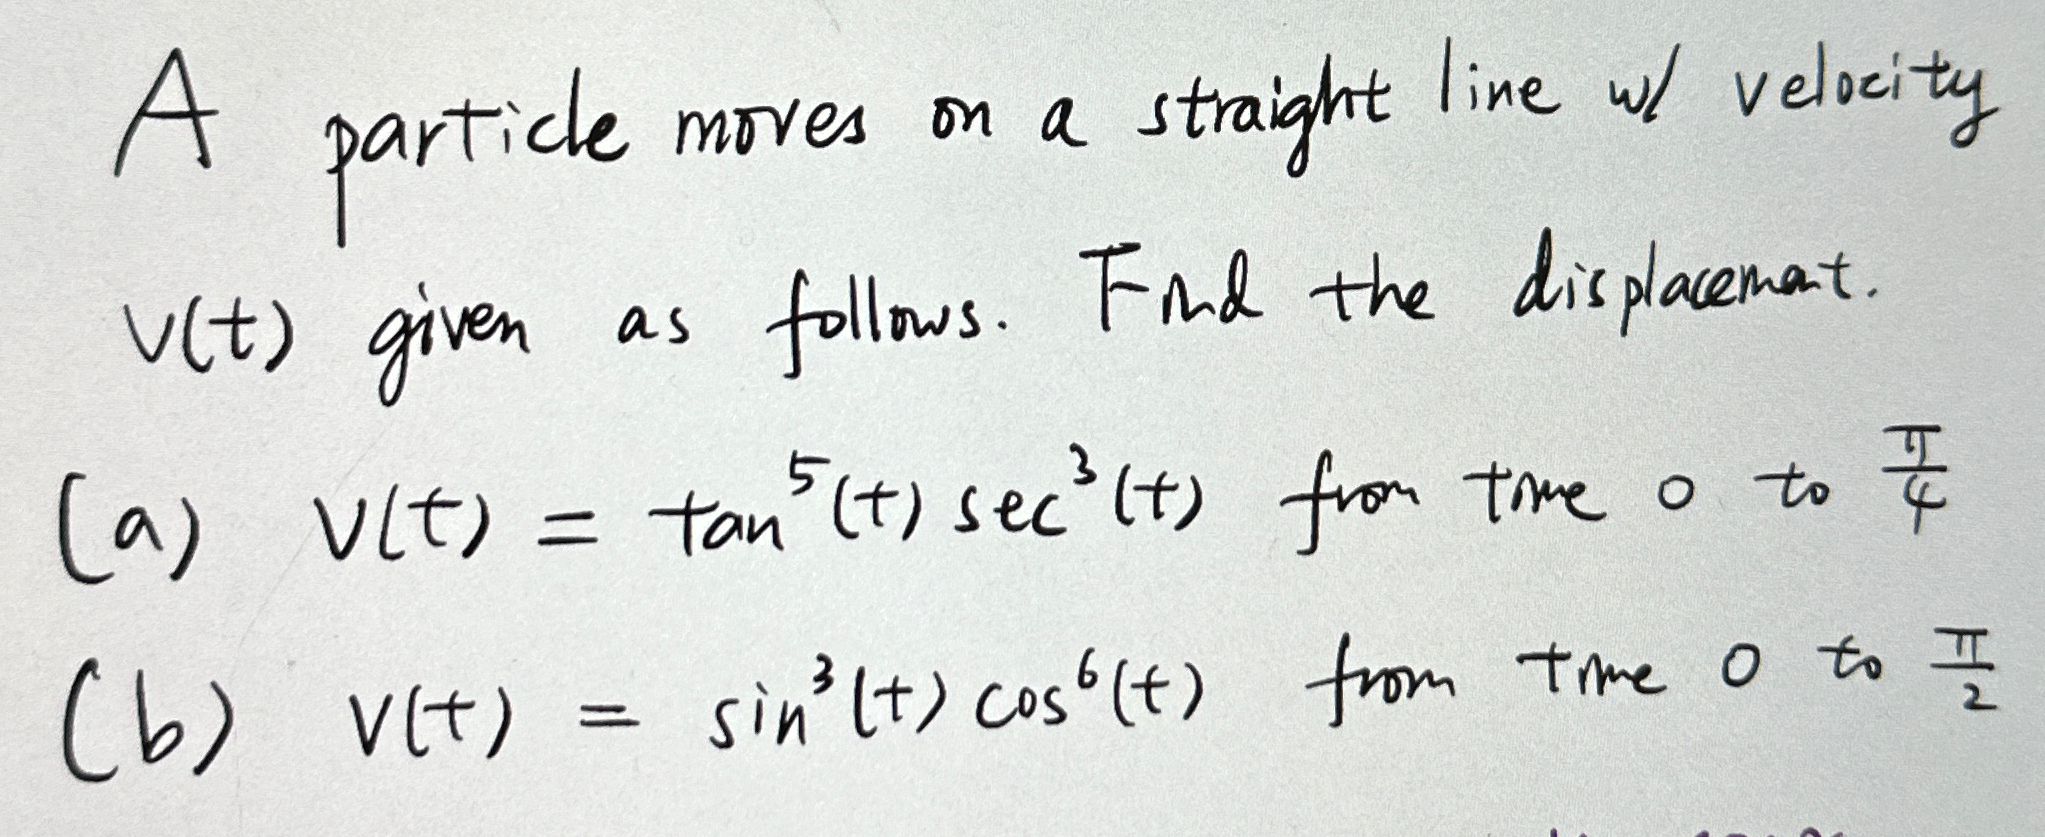 A particle moves on a straight line w/ velocity
v(t) given as follows. Find the displacement.
(a) v(t) = tan⁵(t) sec³(t) from time 0 to π/4
(b) v(t) = sin³(t) cos⁶(t) from time 0 to π/2